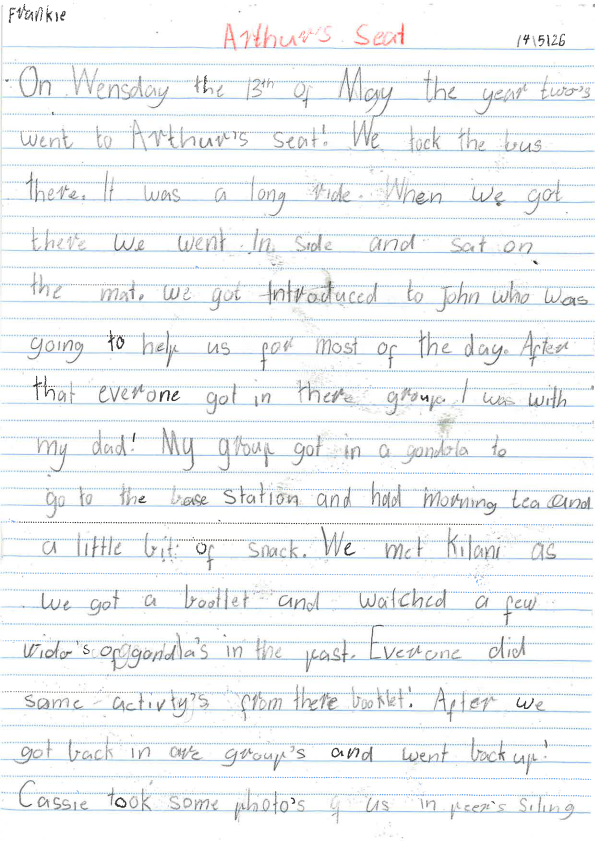 Frankie
Arthur's Seat
14/5/26
On Wensday the 13th of May the year two's
went to Arthur's seat! We tock the bus
there. It was a long ride. When we got
there we went In side and sat on
the mat. we got Introduced to John who was
going to help us for most of the day. After
that everone got in there group. I was with
my dad! My group got in a gondola to
go to the base station and had morning tea and
a little bit of snack. We met Kilani as
we got a booklet and watched a few
vido's of gondla's in the past. Everone did
some activty's from there booklet! After we
got back in are group's and went back up!
Cassie took some photo's of us in peer's siting